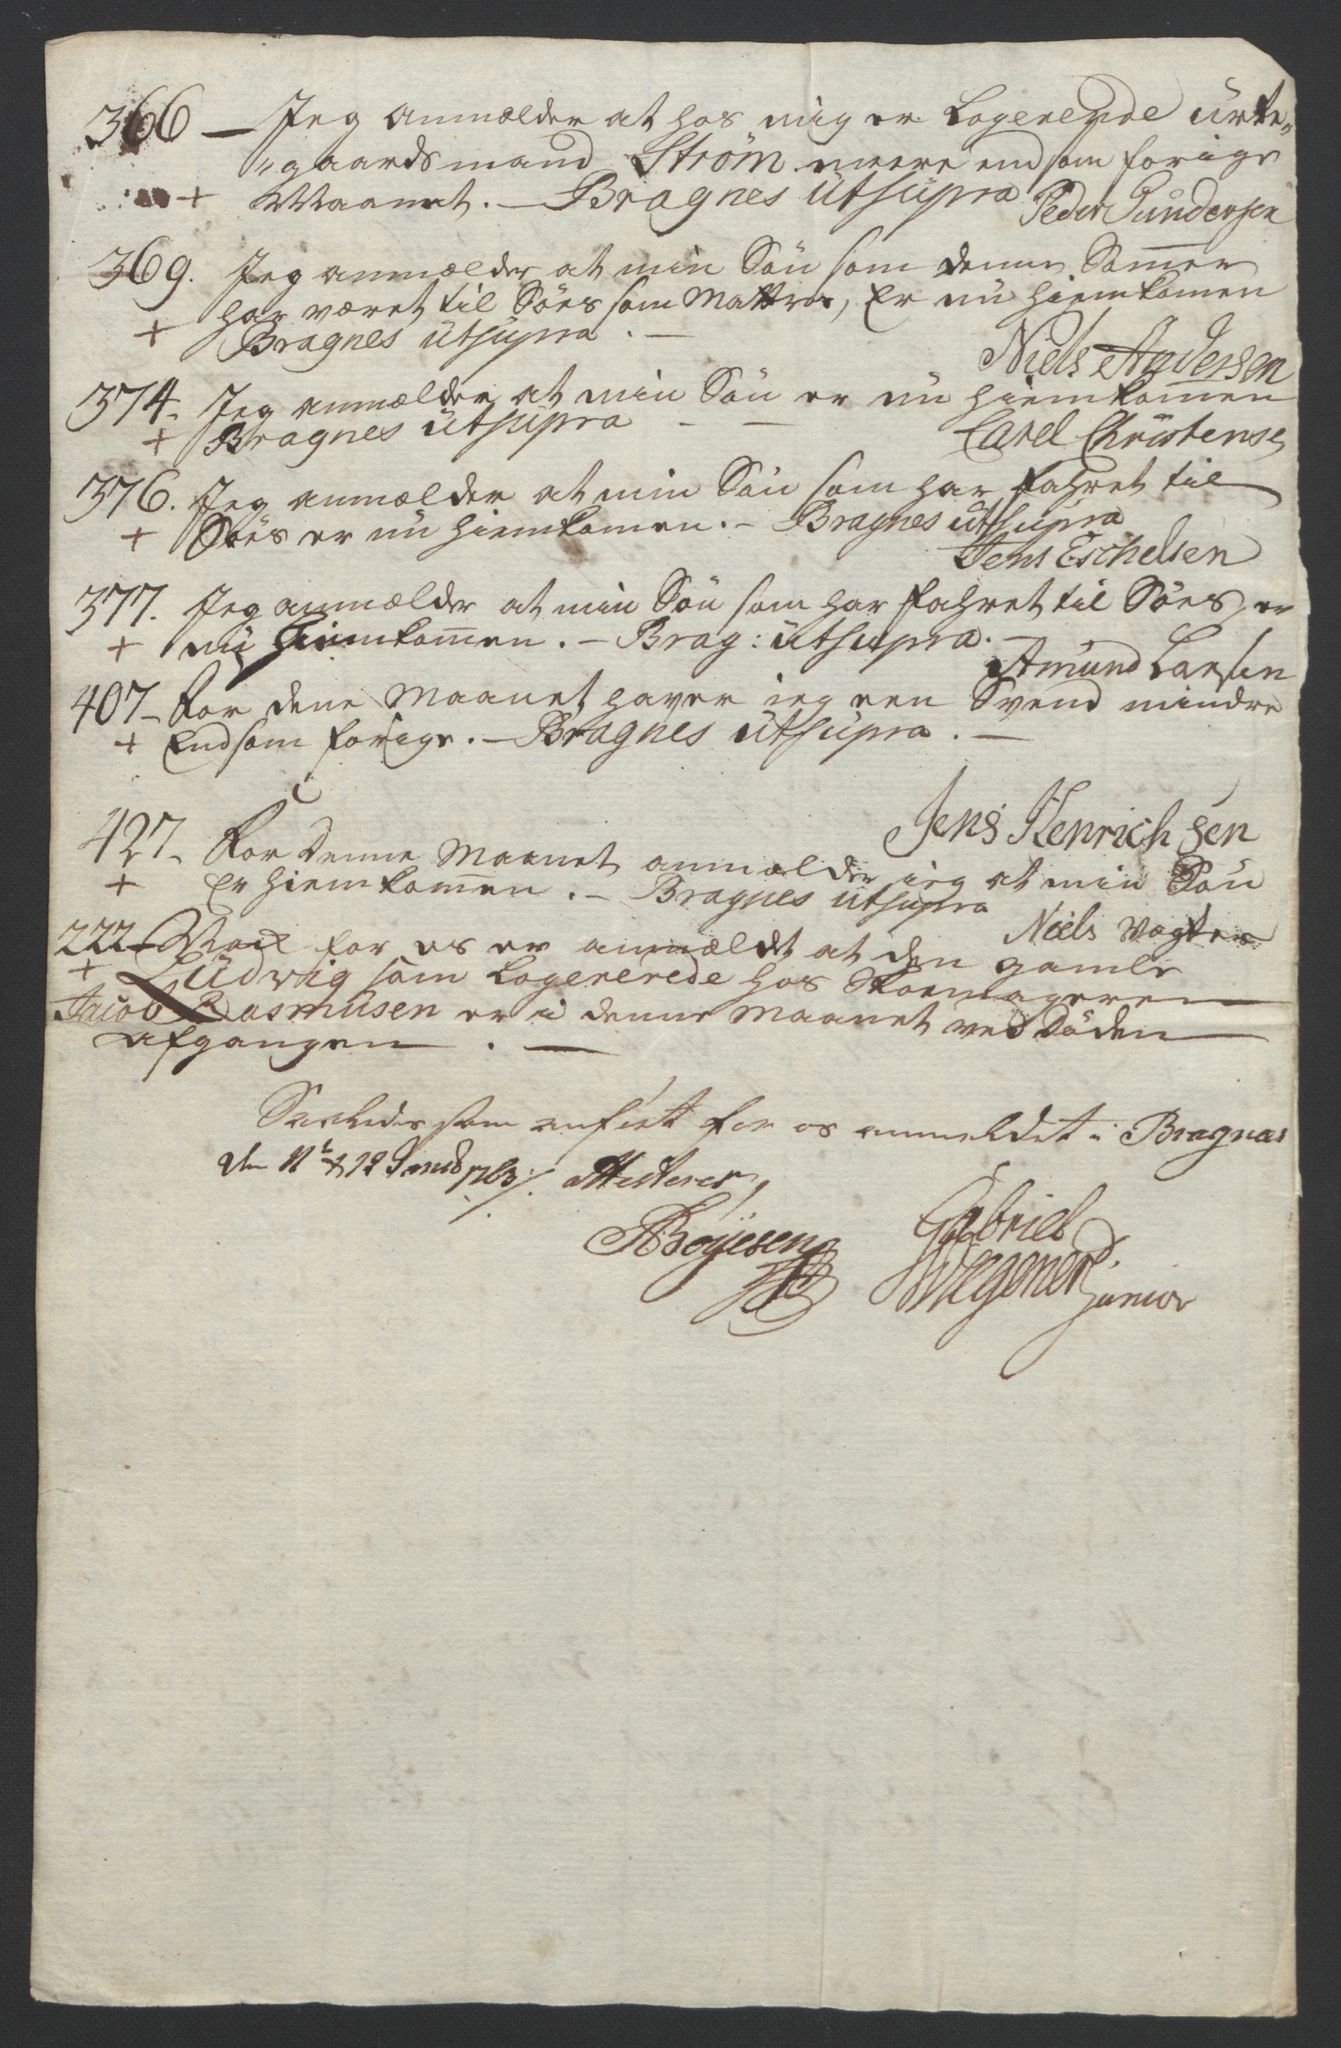 366 — Jeg anmælder at hos mig er Logerende urte„
„gaardsmand Strøm meere end som forige
+ Maanet. — Bragnes utsupra Peder Gundersen
369. Jeg anmælder at min Sön som denne Som̄er
har været til Söes som Mattros, Er nu hiemkomen
+ Bragnes utsupra. —
Niels Andersen
374. Jeg anmælder at min Sön er nu hiemkomen
+ Bragnes utsupra — — Carel Christensen
376. Jeg anmælder at min Sön som har fahret til
+ Söes er nu hiemkomen. — Bragnes utsupra
Jens Eschelsen
377. Jeg anmælder at min Sön som har fahret til Söes, er
+ nu hiemkom̄en. — Brag: utsupra. —
Amund Larsen
407 — For dene Maanet haver jeg een Svend mindre
+ Endsom forige. — Bragnes utsupra. —
Jens Henrichsen
427 — For denne Maanet anmælder jeg at min Sön
+ Er hiemkom̄en. — Bragnes utsupra
Niels Vogter
222 — for os er anmældt at den gamle
+ Ludvig som Logererede hos Skoemageren
Jacob Rasmusen er i denne Maanet ved Döden
afgangen. —
Saaledes som anfört for os anmeldet i Bragnæs
d. 11t & 12 1763 Attesterer,
Böyesen Gabriel
Wegener
junior